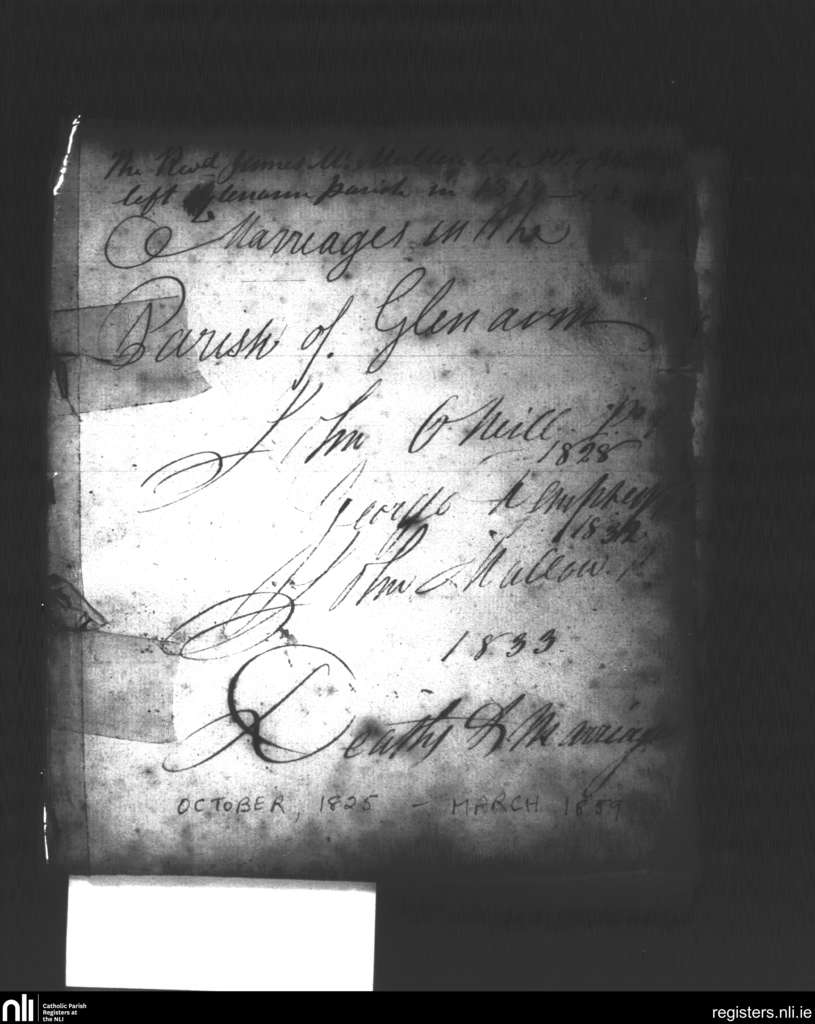 The Revd James McMullen late PP of
left Glenarm parish in
Marriages in the
Parish of Glenarm
John O'Neill P.P.
1828
George Dempsey
1832
John Mallow P.
1833
Deaths & Marriages
OCTOBER, 1825 - MARCH 1859
nli
Catholic Parish
Registers at
the NLI
registers.nli.ie